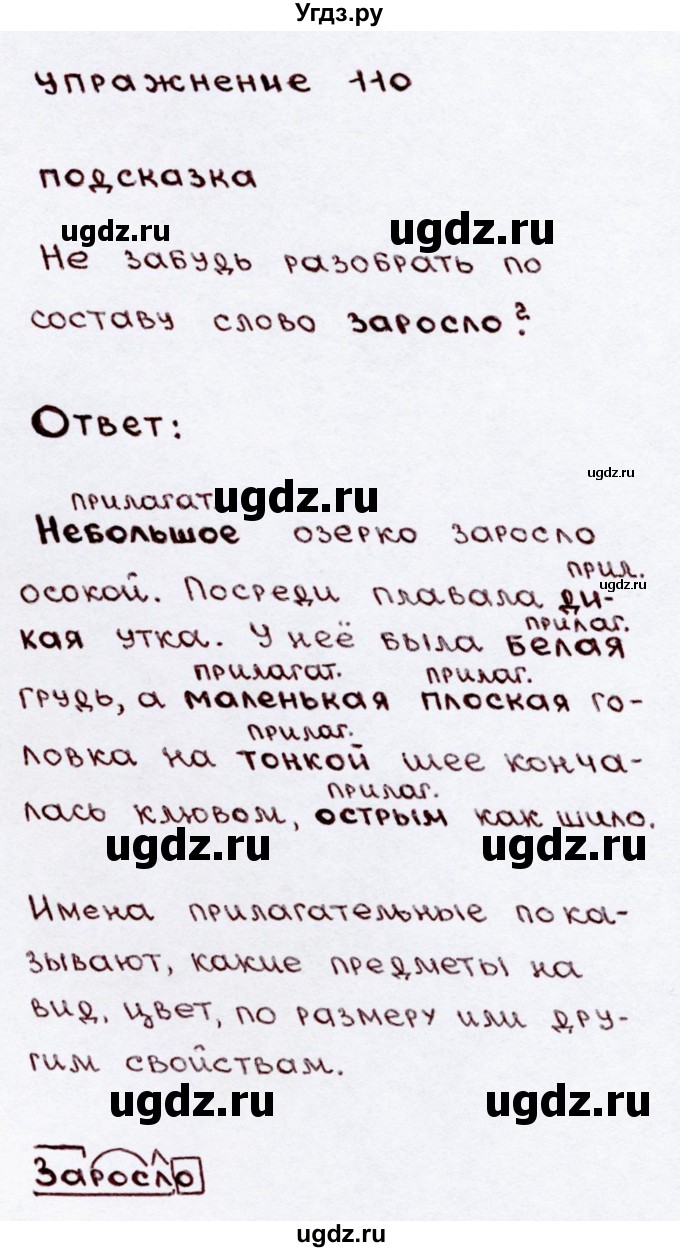 Угдз.ру
упражнение 110
подсказка
ugdz.ru ugdz.ru
Не забудь разобрать по
составу слово заросло?
Ответ:
ugdz.ru
прилагат ugdz.ru
Небольшое озерко заросло
прил.
ugdz.ru
осокой. Посреди плавала ди-
прилаг.
кая утка. У неё была белая
прилагат. прилаг.
грудь, а маленькая плоская го-
прилаг.
ловка на тонкой шее конча-
прилаг.
лась клювом, острым как шило.
ugdz.ru ugdz.ru
Имена прилагательные пока-
зывают, какие предметы на
вид, цвет, по размеру или дру-
гим свойствам.
ugdz.ru ugdz.ru
Заросло
ugdz.ru